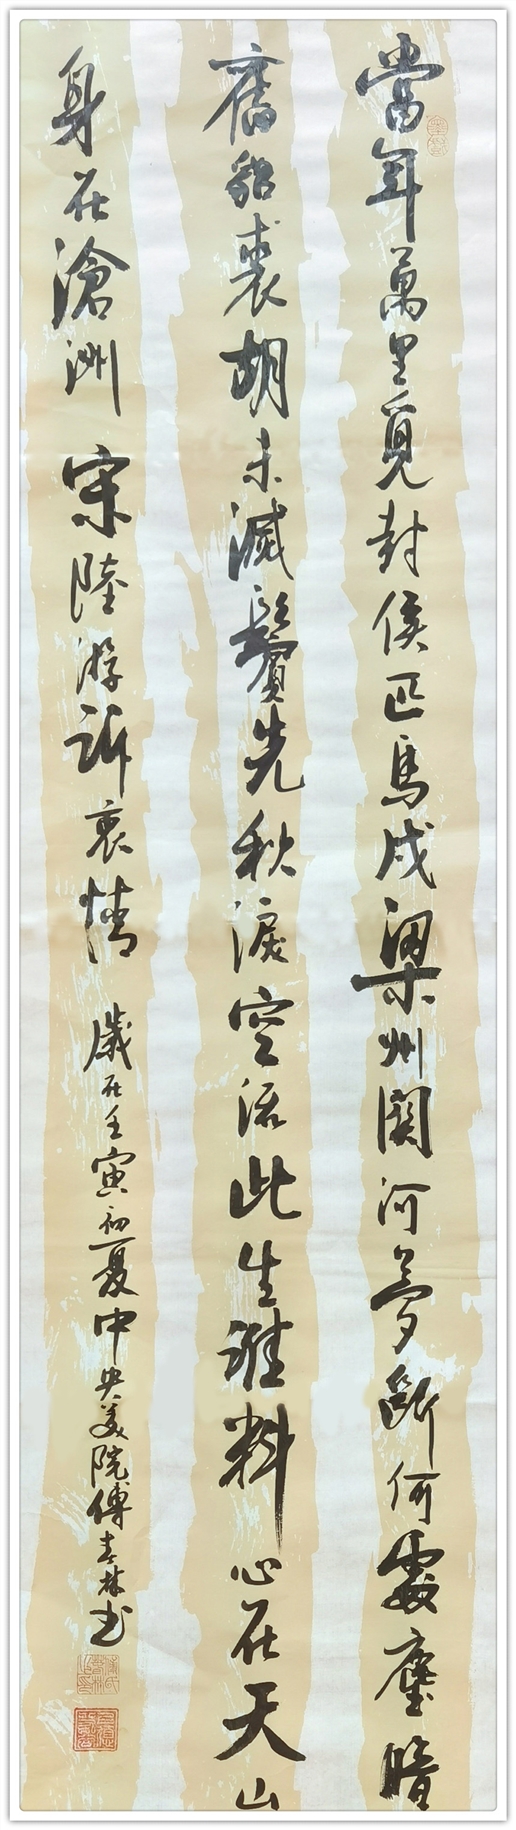 當年萬里覓封侯匹馬戍梁州關河夢斷何處塵暗
舊貂裘胡未滅鬢先秋淚空流此生誰料心在天山
身在滄洲 宋陸游訴衷情 歲在壬寅初夏中央美院傅春林书